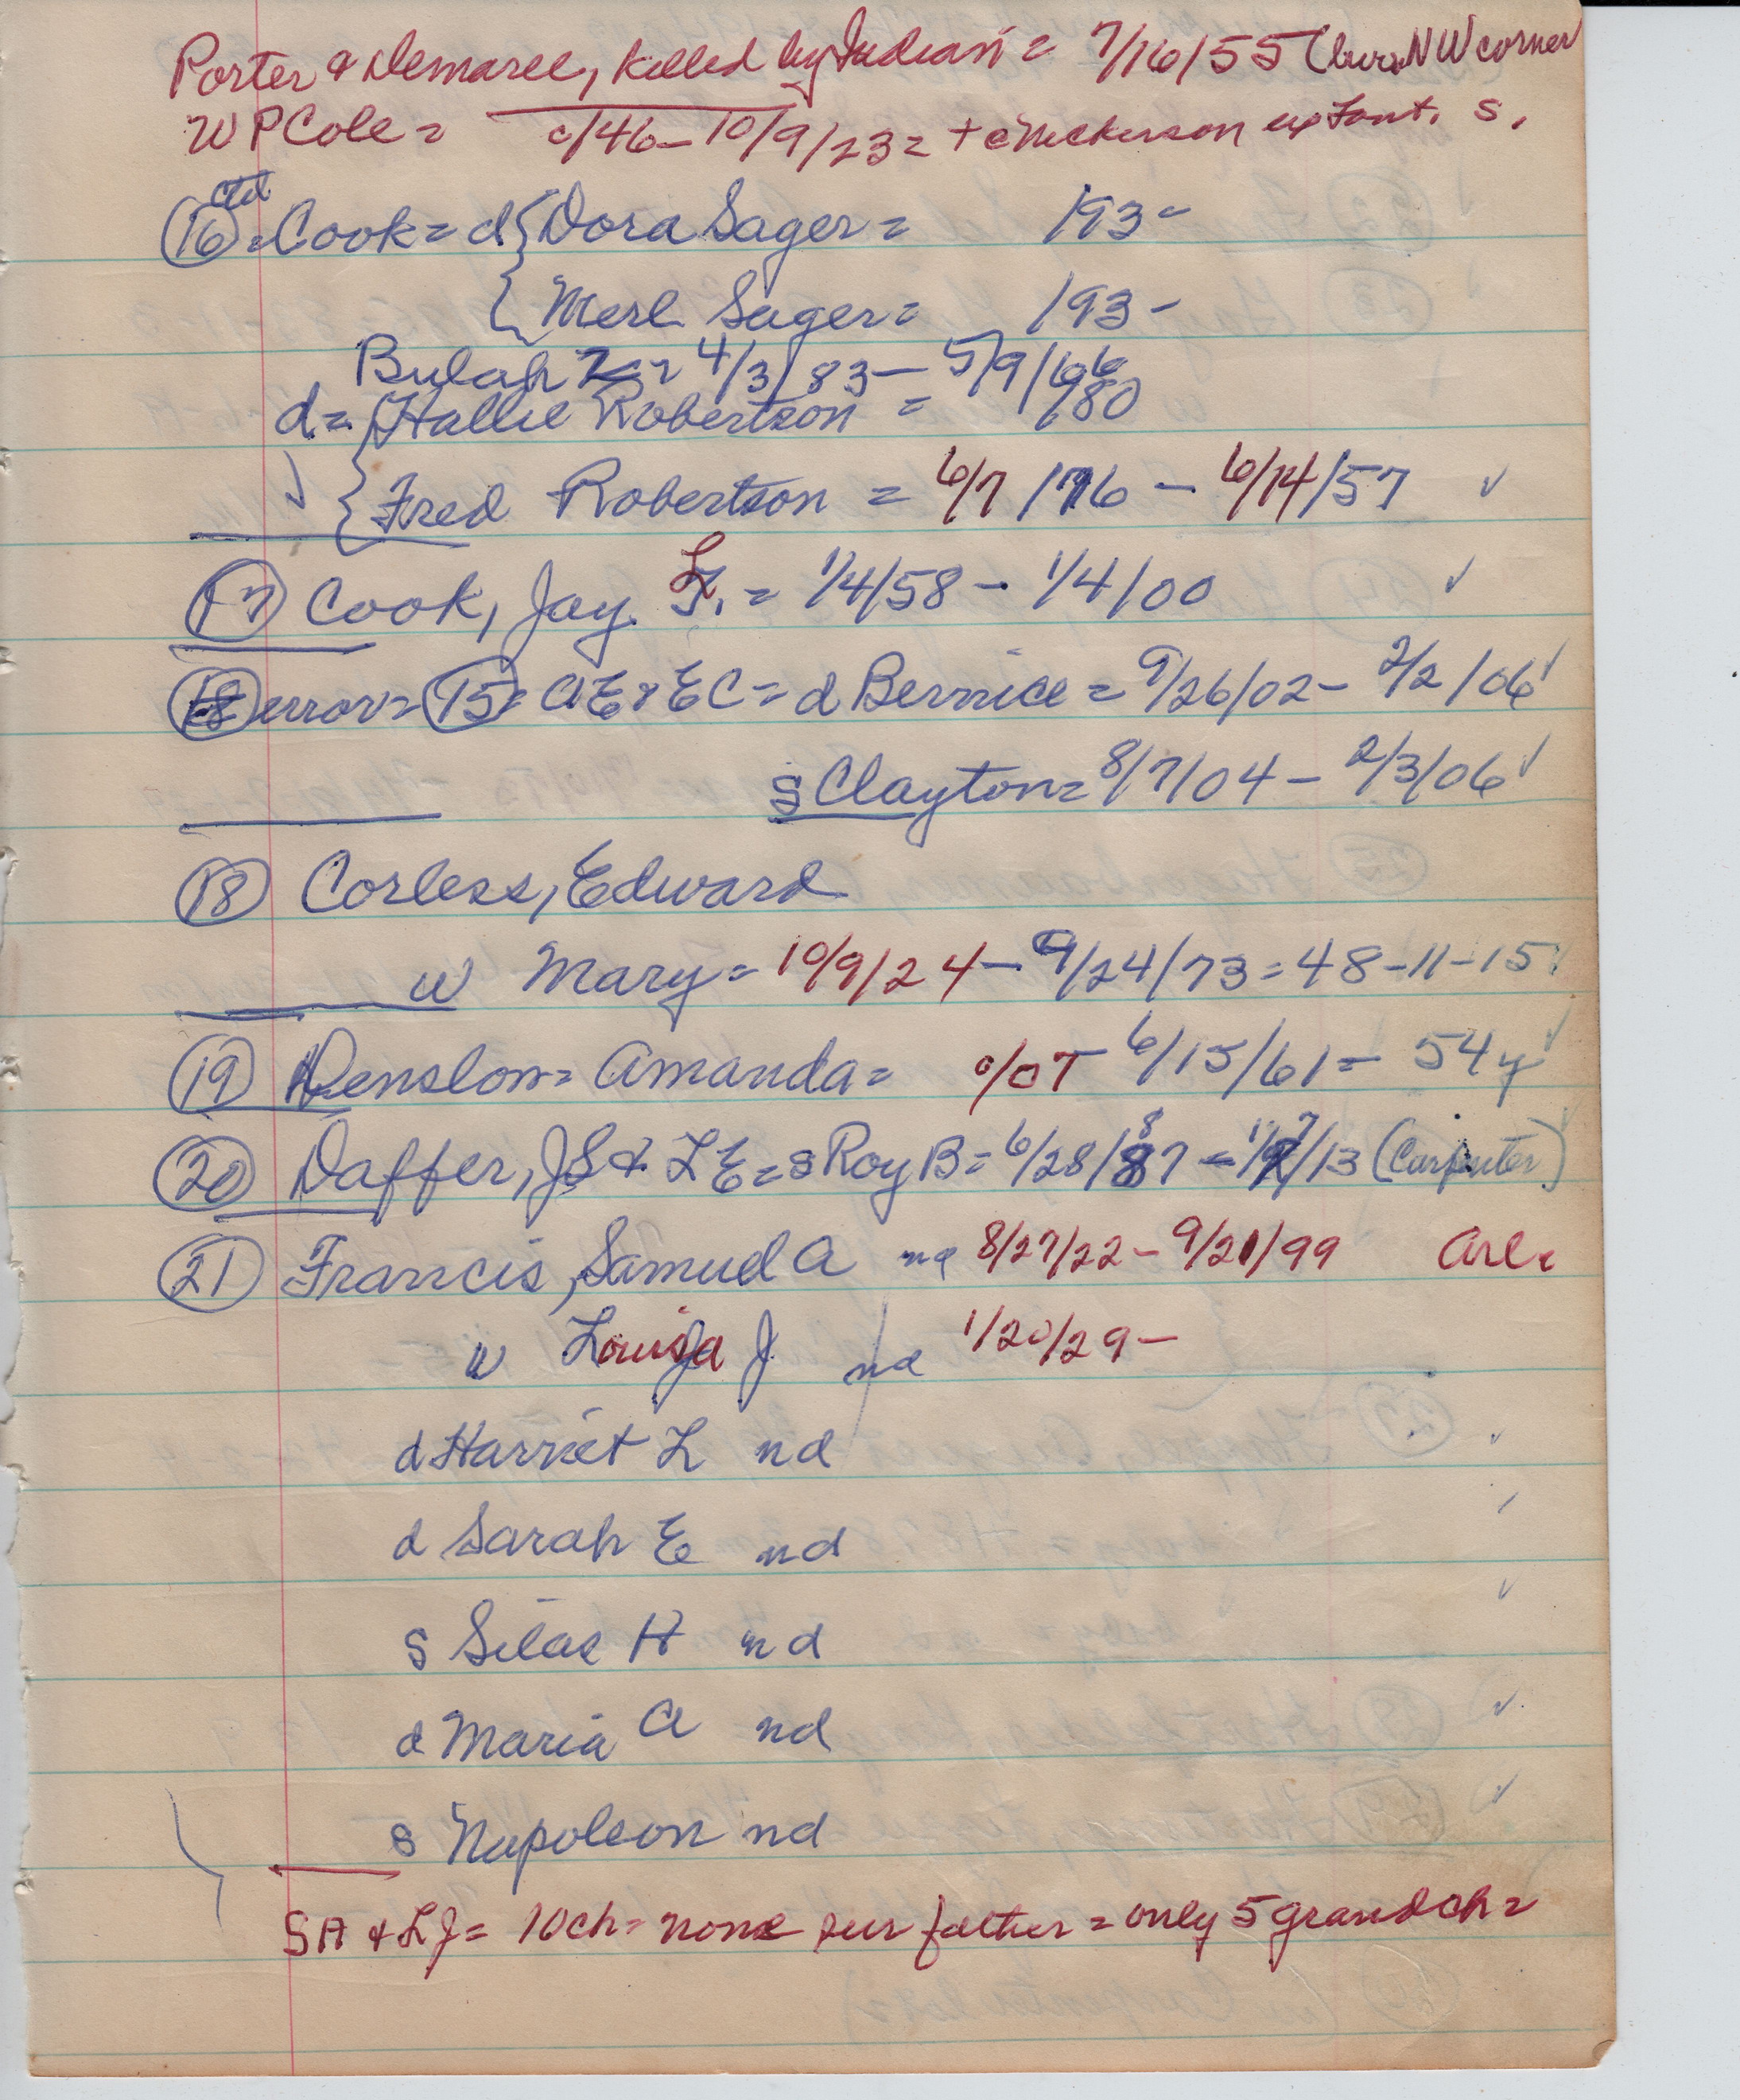 Porter & Demaree, killed by Indian = 7/16/55 (bur. NW corner
WP Cole = c/46 - 10/9/23 = + c Nickerson up Tant. S.
(16) ctd = Cook = d { Dora Sager = 193-
{ Merl Sager = 193-
Bulah 4/3/83 - 5/9/66
d = { Hallie Robertson = 1880
{ Fred Robertson = 6/7/1876 - 6/14/57 ✓
(17) Cook, Jay L. = 1/4/58 - 1/4/00 ✓
(18) error = (15) = AE & EC = d Bernice = 9/26/02 - 2/2/06 ✓
s Clayton = 8/7/04 - 2/3/06 ✓
(18) Corless, Edward
w Mary = 10/9/24 - 9/24/73 = 48-11-15
(19) Denslow = Amanda = c/07 - 6/15/61 = 54y ✓
(20) Daffer, JS & LE = s Roy B = 6/28/87 - 1/7/13 (Carpenter)
(21) Francis, Samuel A nd 8/27/22 - 9/21/99 Arl.
w Louisa J nd 1/20/29 -
d Harriet L nd ✓
d Sarah E nd ✓
s Silas H nd ✓
d Maria A nd ✓
s Napoleon nd ✓
SA & LJ = 10 ch = none sur father = only 5 grandch =